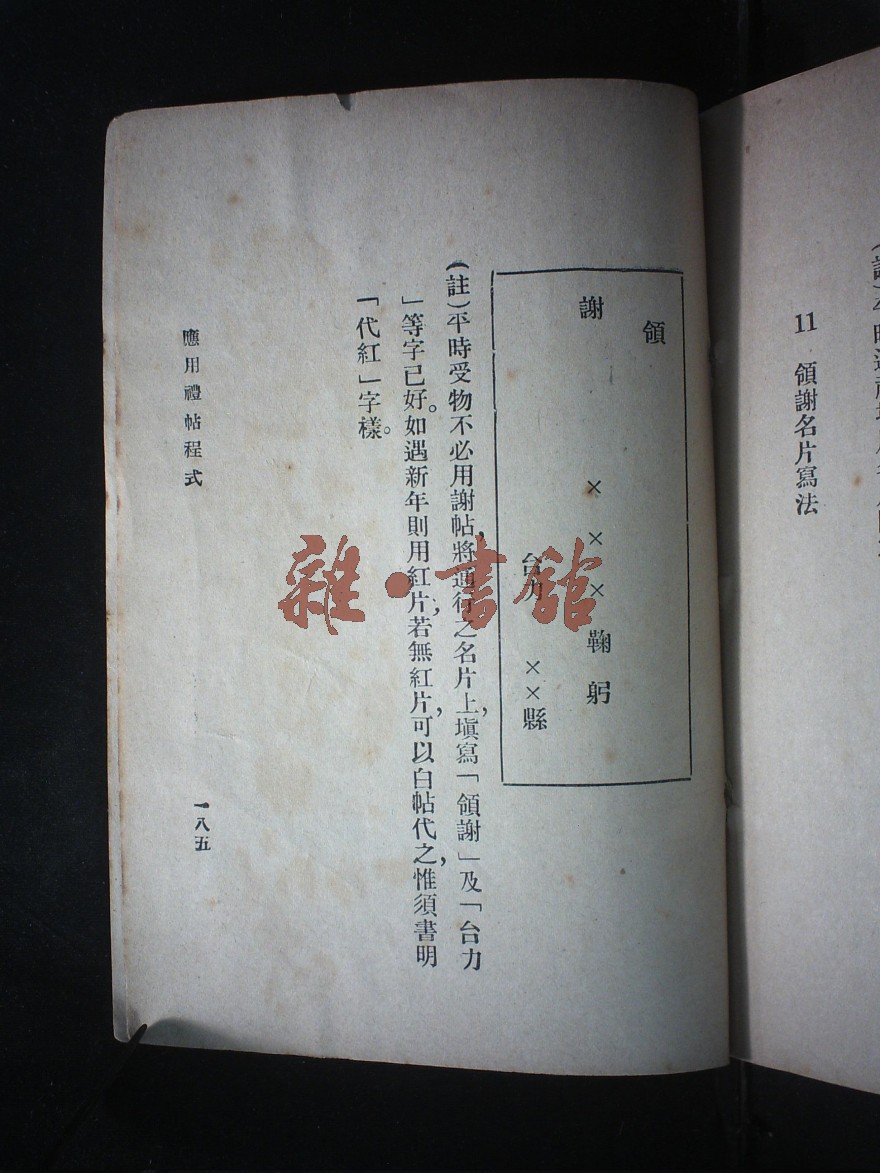 11　領謝名片寫法
領
謝
×××鞠躬
台力　××縣
(註)平時受物不必用謝帖，將通行之名片上，塡寫「領謝」及「台力
」等字已好。如遇新年則用紅片，若無紅片，可以白帖代之，惟須書明
「代紅」字樣。
應用禮帖程式
一八五
雜·書館